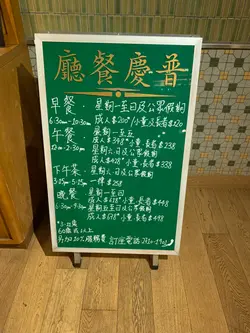 廳餐慶普
早餐 - 星期一至日及公眾假期
6:30am - 10:30am 成人$200* 小童/長者$120
午餐 - 星期一至五
12nn - 2:30pm 成人$398* 小童·長者$238
星期六、日及公眾假期
成人$428* 小童·長者$338
下午茶 - 星期六、日及公眾假期
3:15pm - 5:15pm 一律$258
晚餐 - 星期一至四
6:30pm - 9:30pm 成人$618* 小童·長者$448
星期五至日及公眾假期
成人$678* 小童·長者$498
*3-11歲
60歲或以上
另加10%服務費 訂座電話